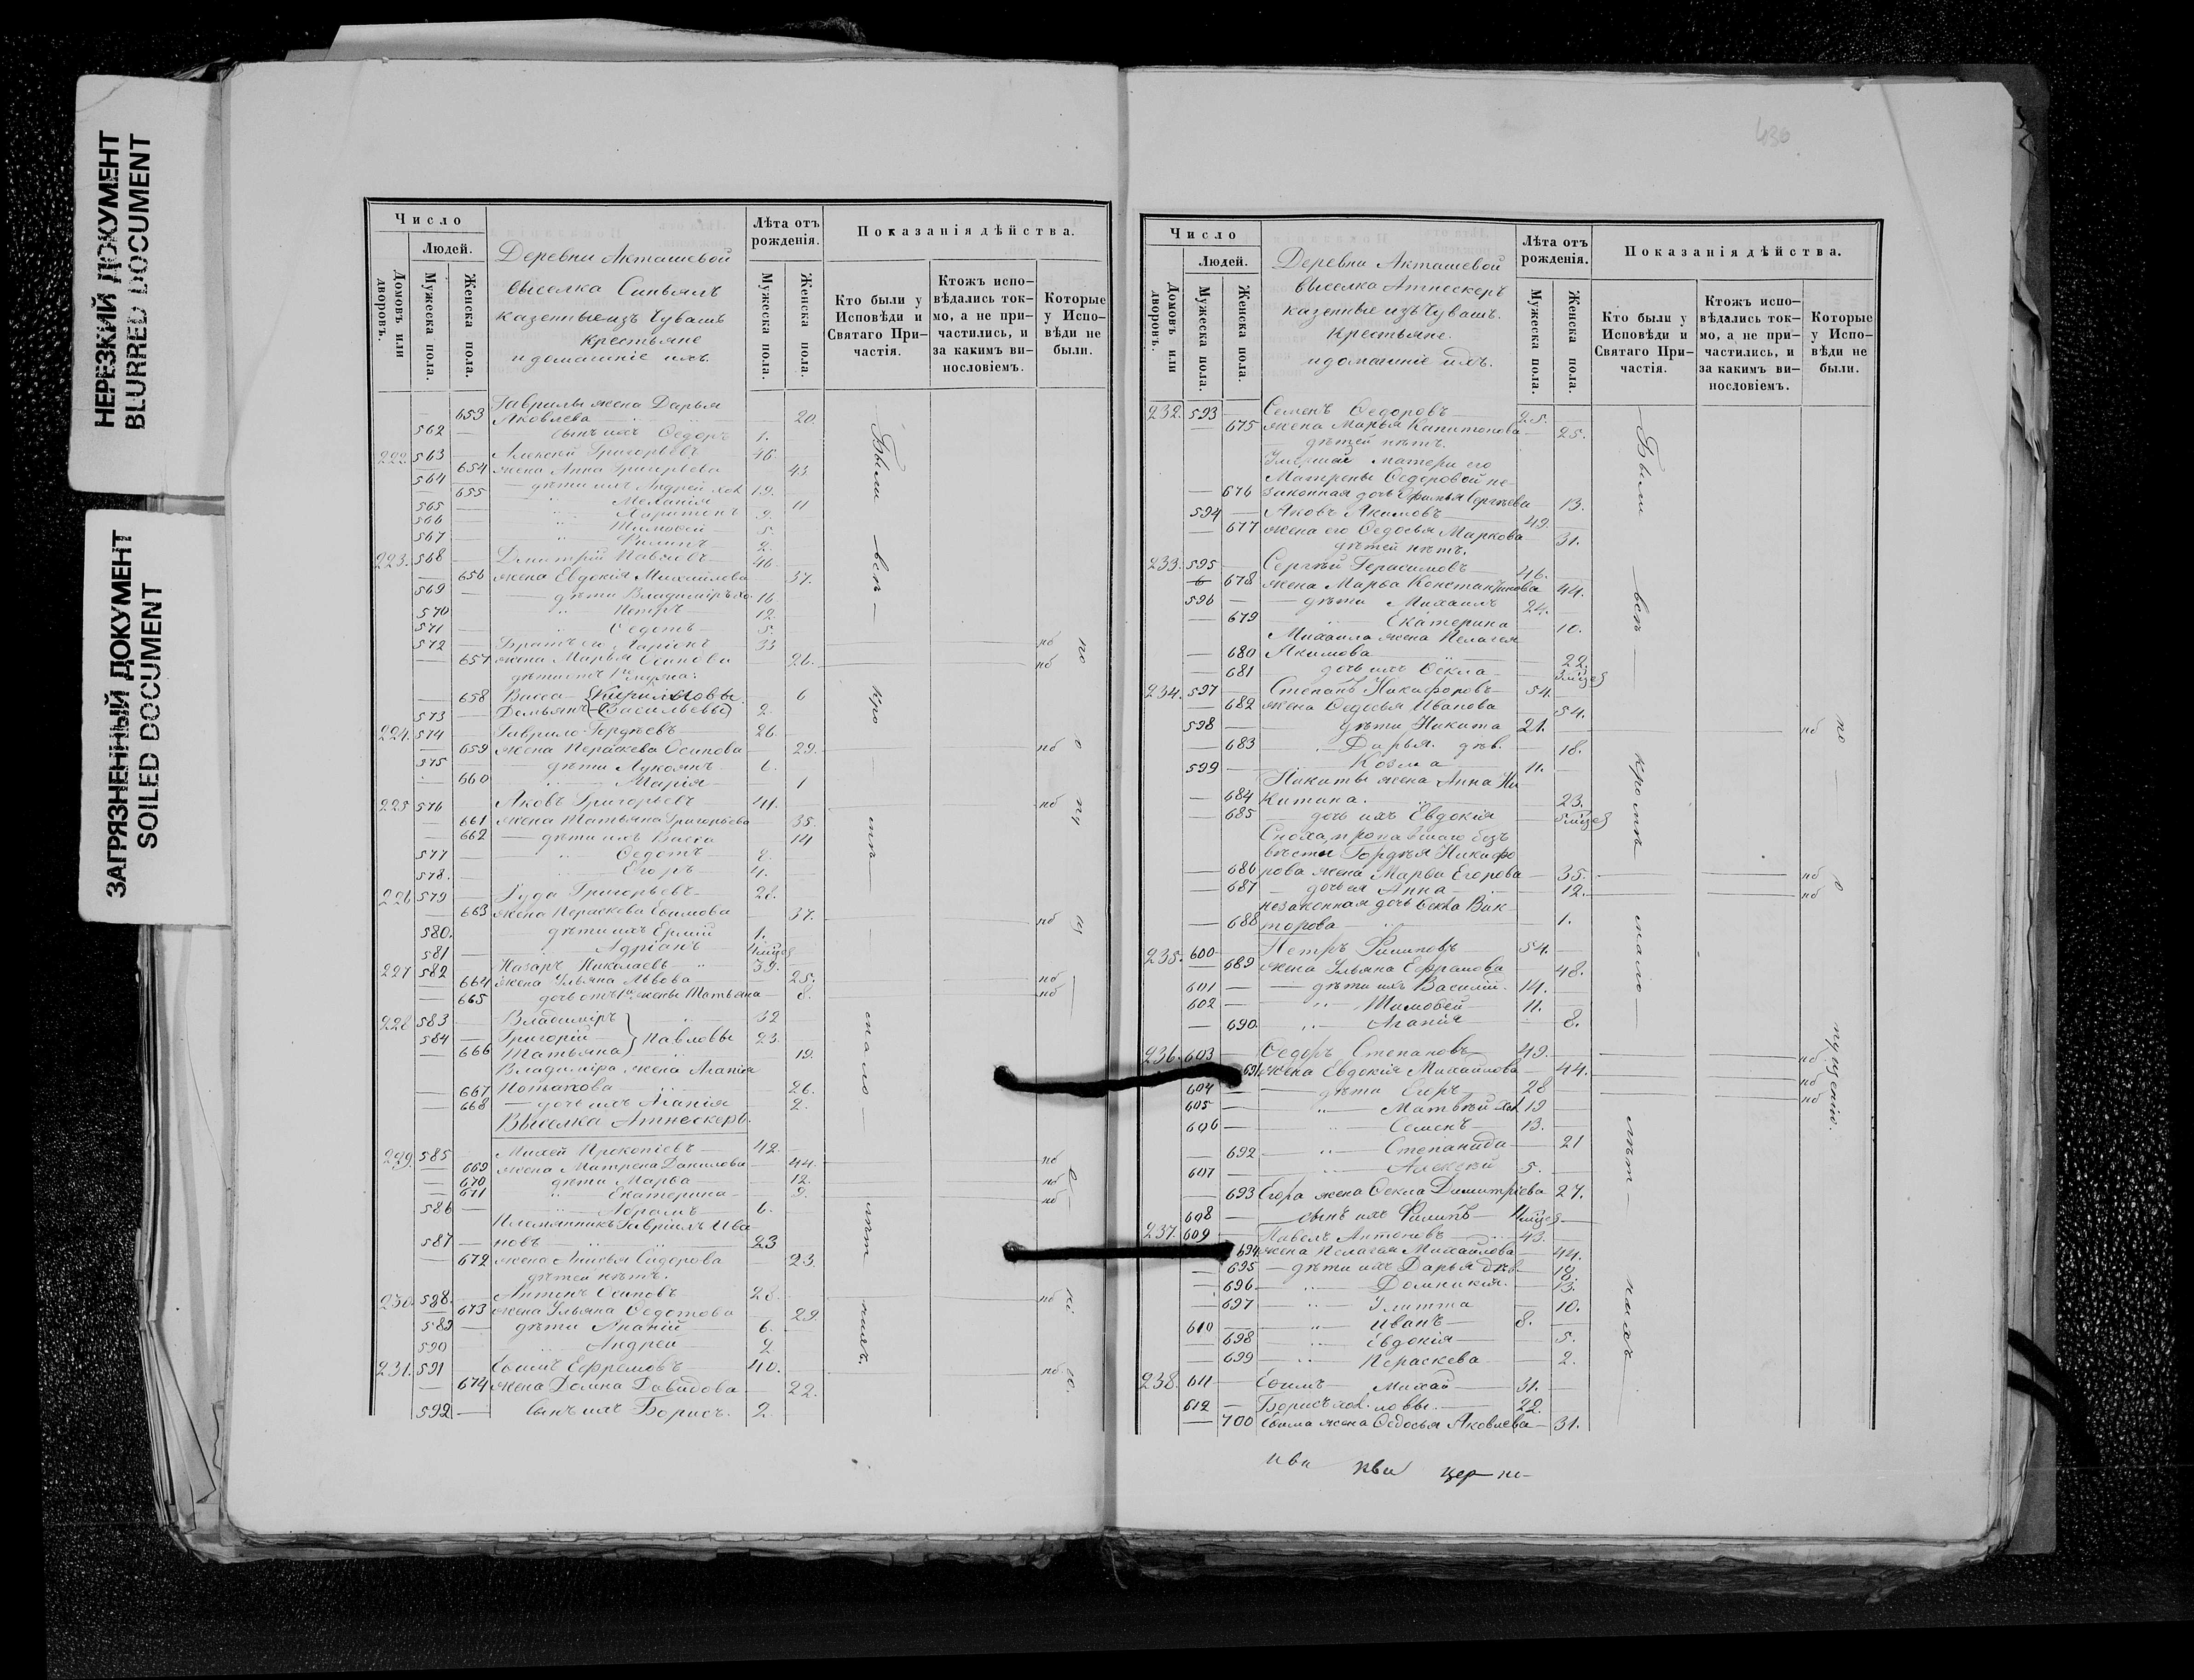 НЕРЕЗКИЙ ДОКУМЕНТ
BLURRED DOCUMENT
ЗАГРЯЗНЕННЫЙ ДОКУМЕНТ
SOILED DOCUMENT
Число
Людей.
Домовъ или дворовъ.
Мужеска пола.
Женска пола.
Деревни Акташевой
выселка Синьялъ
казенные изъ Чувашъ
Крестьяне
и домашніе ихъ.
Лѣта отъ рожденія.
Мужеска пола.
Женска пола.
Показанія дѣйства.
Кто были у Исповѣди и Святаго Причастія.
Ктожъ исповѣдались токмо, а не причастились, и за какимъ винословіемъ.
Которые у Исповѣди не были.
653 Гаврилы жена Дарья
Яковлева 20.
562 сынъ ихъ Ѳедоръ 1.
222 563 Алексей Григорьевъ 46
654 жена Анна Григорьева 43
564 дѣти ихъ Андрей хол 19.
655 Меланія 11
565 Харитонъ 9.
566 Тимоѳей 5.
567 Филипъ 2.
223. 568 Дмитрій Павловъ 46
656 жена Евдокія Михайлова 37.
569 дѣти Владимиръ хо. 16
570 Петръ 12.
571 Ѳедотъ 5.
572 Братъ его Ларіонъ 33 нб
657 жена Марья Осипова 26. нб
658 Васса Кириловы 6
573 Демьянъ (Васильевы) 2.
224. 574 Гаврило Гордѣевъ 26
659 жена Пераскева Осипова 29. нб
575 дѣти Лукоянъ 6.
660 Марія 1
225 576 Яковъ Григорьевъ 41. нб
661 жена Татьяна Григорьева 35.
662 дѣти ихъ Васса 14
577 Ѳедотъ 8.
578. Егоръ 4.
226 579 Гуда Григорьевъ 28.
663 жена Пераскева Еѳимова 37. нб
580. дѣти ихъ Ермій 1.
581 Адріанъ 4 мѣцев
227 582 Назаръ Николаевъ 39.
664 жена Ульяна Львова 25. нб
665 дочь отъ 1й жены Татьяна 8. нб
228 583 Владимиръ 32
584 Григорій Павловы 23.
666 Татьяна 19.
Владиміра жена Агапія
667 Потапова 26.
668 дочь ихъ Агапія 2.
Выселка Атнескеръ.
229. 585 Михей Прокопіевъ 42. нб
669 жена Матрена Данилова 44.
670 дѣти Марѳа 12. нб
671 Екатерина 9. нб
586 Абрамъ 6.
Племянникъ Гаврилъ Ива
587 новъ 23
672 жена Анисья Сидорова 23.
дѣтей нѣтъ.
230. 588. Антонъ Осиповъ 28. нб
673 жена Ульяна Ѳедотова 29.
589 дѣти Ананій 6.
590 Андрей 2
231. 591 Еѳимъ Ефремовъ 40.
674 жена Домна Давидова 22. нб
592 сынъ ихъ Борисъ. 2.
Были всѣ кро мѣ мало лѣт нихъ.
430
Число
Людей.
Домовъ или дворовъ.
Мужеска пола.
Женска пола.
Деревни Акташевой
выселка Атнескеръ
казенные изъ Чувашъ.
Крестьяне.
и домашніе ихъ.
Лѣта отъ рожденія.
Мужеска пола.
Женска пола.
Показанія дѣйства.
Кто были у Исповѣди и Святаго Причастія.
Ктожъ исповѣдались токмо, а не причастились, и за какимъ винословіемъ.
Которые у Исповѣди не были.
232. 593 Семенъ Ѳедоровъ 25.
675 жена Марья Капитонова 25.
дѣтей нѣтъ.
Умершей матери его
Матрены Ѳедоровой не-
676 законная дочь Сергѣева 13.
594 Яковъ Акимовъ 49.
677 жена его Ѳедосья Маркова 31.
дѣтей нѣтъ.
233. 595 Сергѣй Герасимовъ 46.
678 жена Марѳа Константинова 44.
596 дѣти Михаилъ 24.
679 Екатерина 10.
Михаила жена Пелагея
680 Акимова 22.
681 дочь ихъ Ѳекла мѣцев
234. 597 Степанъ Никифоровъ 54.
682 жена Ѳедосья Иванова 54.
598 дѣти Никита 21. нб
683 Дарья. дѣв. 18.
599 Козма 11.
Никиты жена Анна Ни
684 китина. 23.
685 дочь ихъ Евдокія мѣцев
Сноха, пропавшаго безъ
вѣсти Гордѣя Никифо
686 рова жена Марѳа Егорова 35. нб
687 дочь ея Анна 12. нб
незаконная дочь Ѳекла Вик
688 торова 1.
235. 600 Петръ Филиповъ 54.
689 жена Ульяна Ефремова 48.
601 дѣти ихъ Василій. 14.
602 Тимоѳей 11.
690. Агапія 8.
236. 603 Ѳедоръ Степановъ 49. нб
691 жена Евдокія Михайлова 44. нб
604 дѣти Егоръ 28 нб
605 Матвѣй хол 19
606 Семенъ 13.
692 Степанида 21
607 Алексѣй 5.
693 Егора жена Ѳекла Димитріева 27.
608 сынъ ихъ Филипъ мѣцев
237. 609 Павелъ Антоновъ 43.
694 жена Пелагея Михайлова 44.
695 дѣти ихъ Дарья дѣв. 18.
696 Домникія. 13.
697 Улитта 10.
610 Иванъ 8.
698 Евдокія 5.
699 Пераскева 2.
238. 611 Еѳимъ Михай 31.
612 Борисъ хол. ловы. 22.
700 Еѳима жена Ѳедосья Яковлева 31.
Были всѣ кромѣ мало лѣт нихъ
по о пущенію.